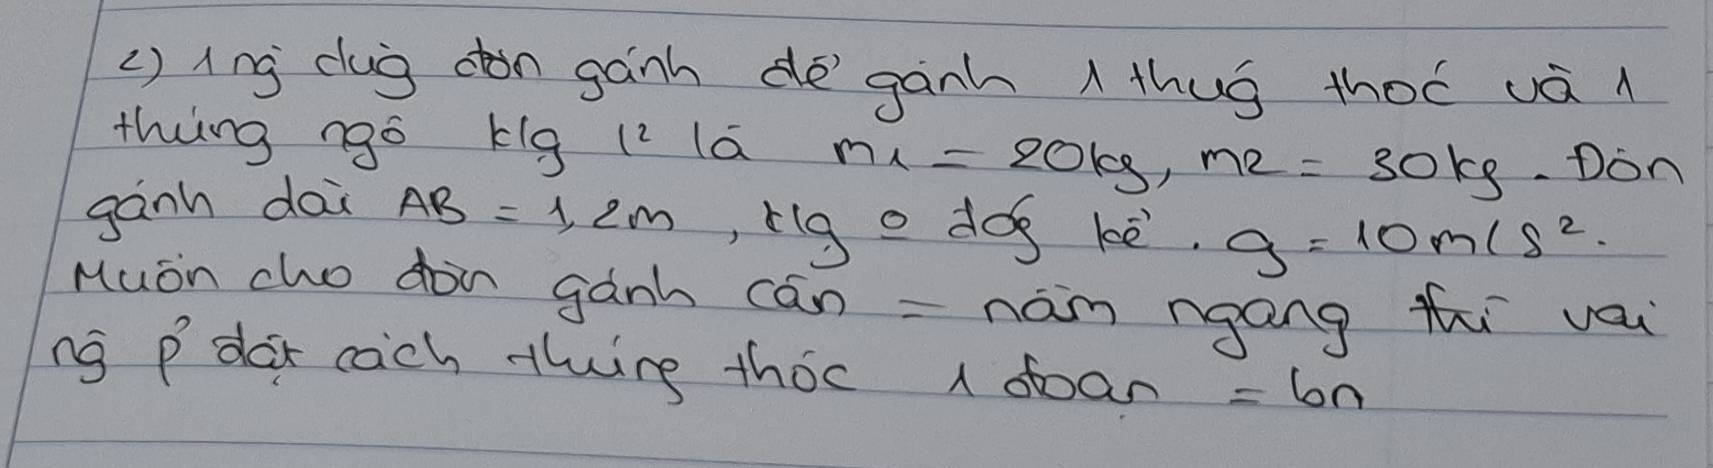 2) 1 ng dùg đòn gánh để gánh 1 thúg thóc và 1
thúng ngô klg l² là m1 = 20kg, m2 = 30kg. Đòn
gánh dài AB = 1,2m, klg o đág kể. g = 10m/s².
Muốn cho đòn gánh cân = nằm ngang thì vai
ng p' đặt cách thúng thóc 1 đoạn = bn